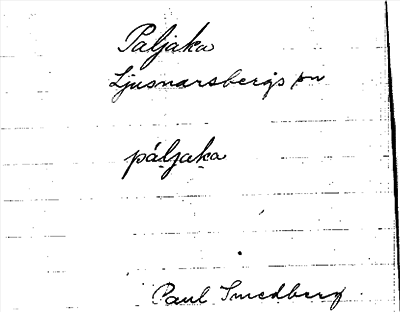 Paljaka
Ljusnarsbergs sn
pàl̥jaka
Paul Smedberg